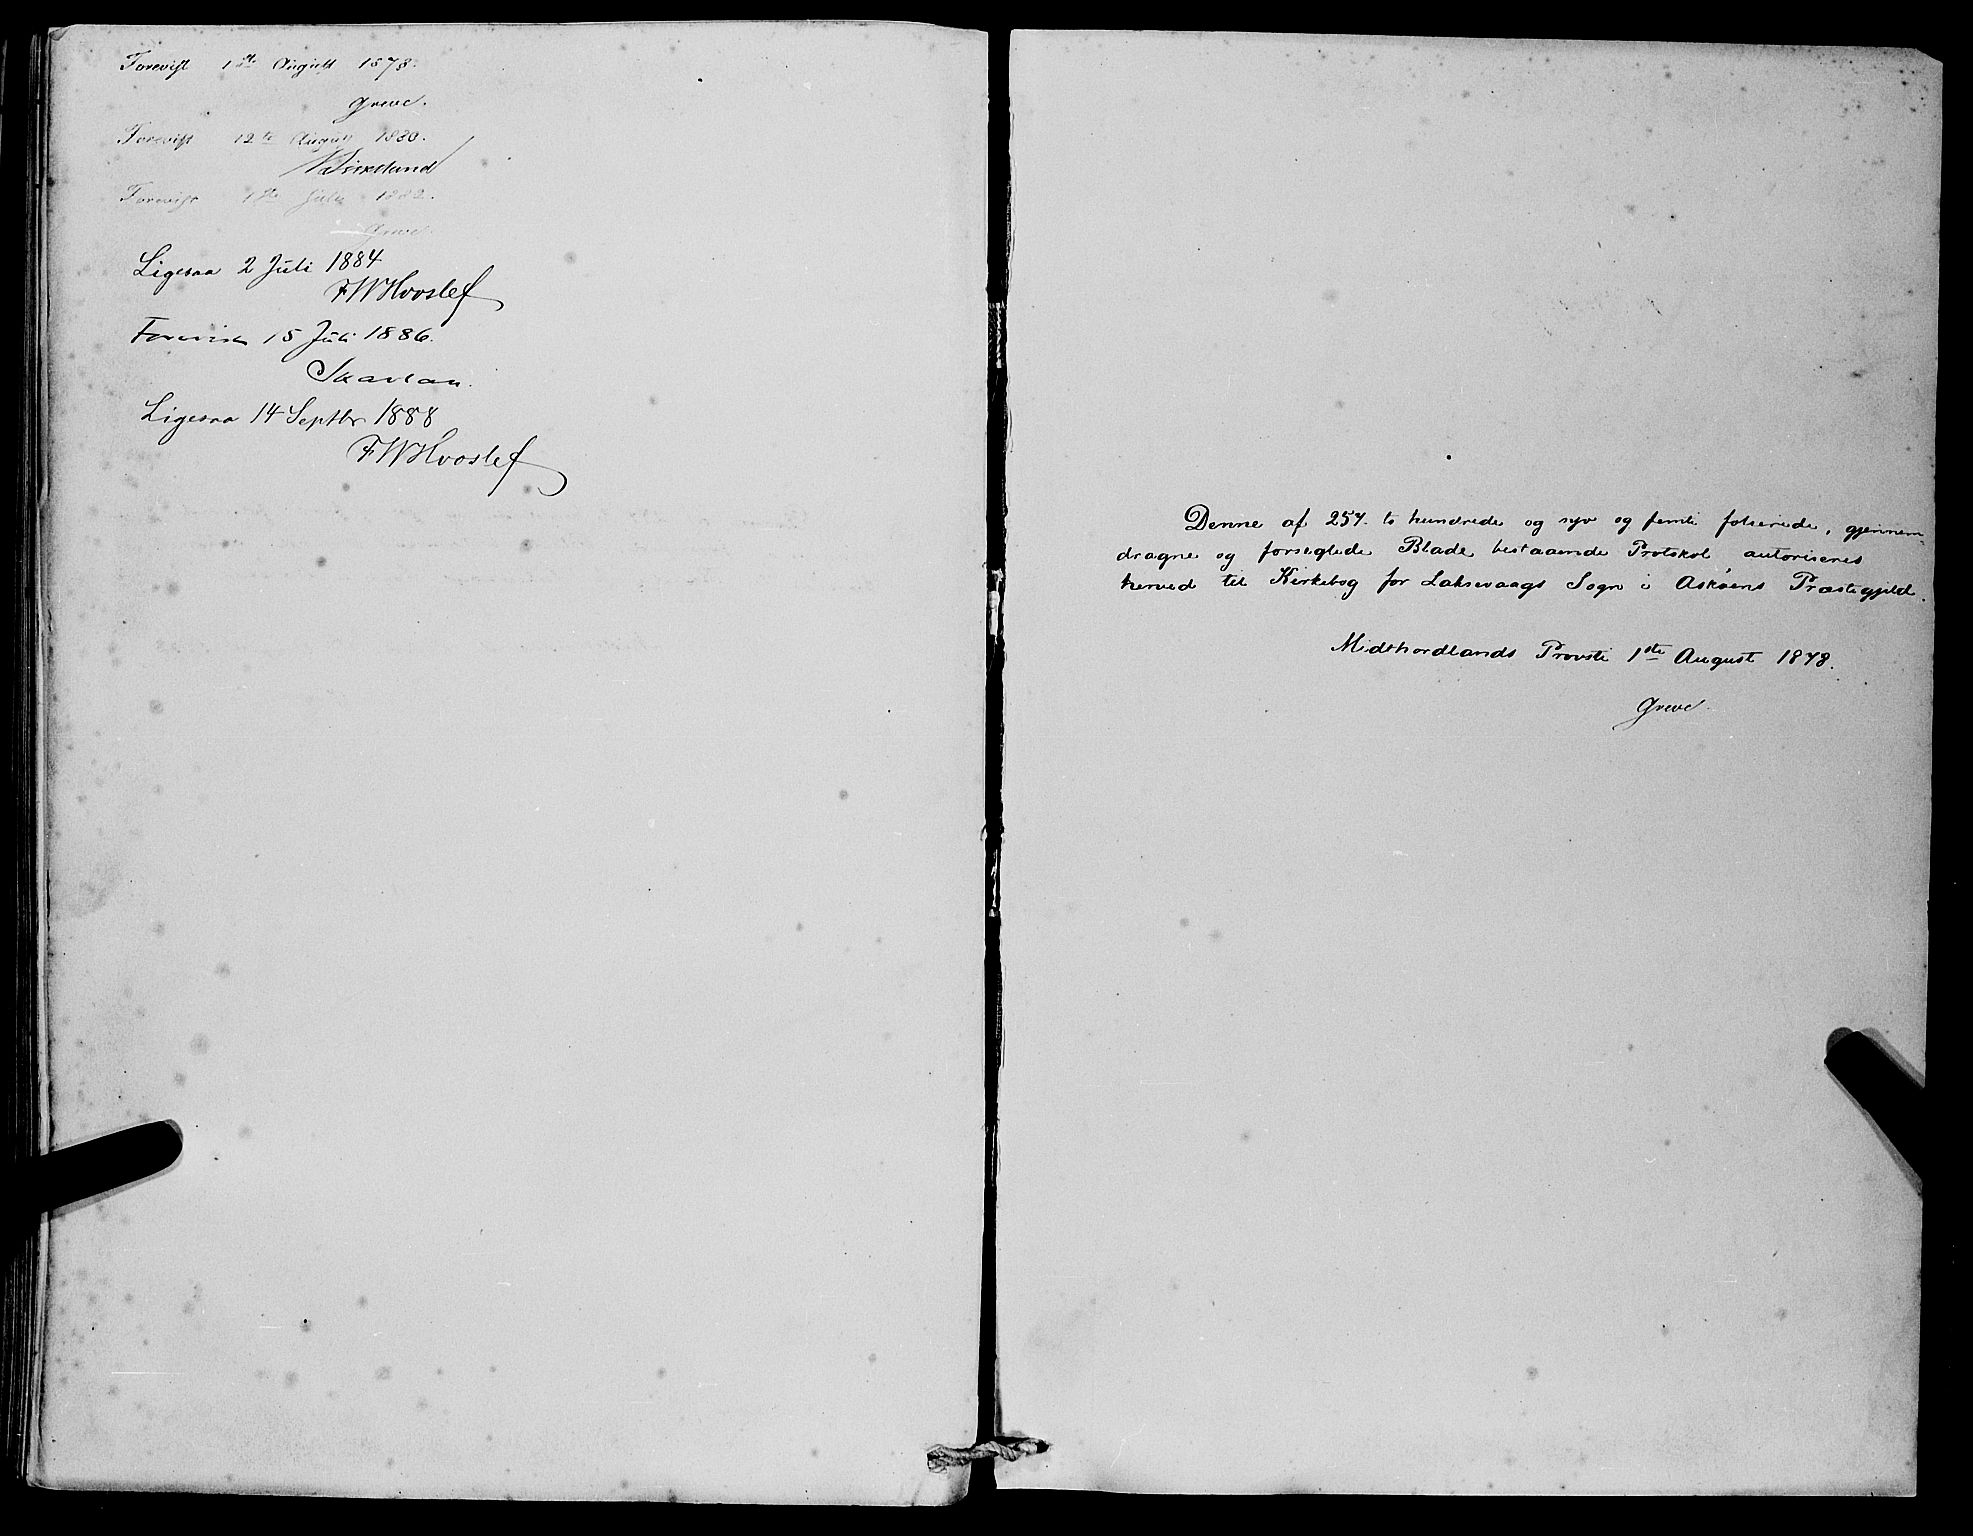 Forevist 1ste August 1878.
Greve.
Forevist 12te August 1880.
Birkeland
Forevist 1ste Juli 1882.
Greve.
Ligesaa 2 Juli 1884
FWHvoslef
Forevist 15 Juli 1886.
Skavlan.
Ligesaa 14 Septbr 1888
FWHvoslef
Denne af 257. to hundrede og syv og femti folierede, gjennem-
dragne og forseglede Blade bestaaende Protokol autoriseres
herved til Kirkebog for Laksevaags Sogn i Askøens Præstegjeld.
Midthordlands Provsti 1ste August 1878.
Greve.